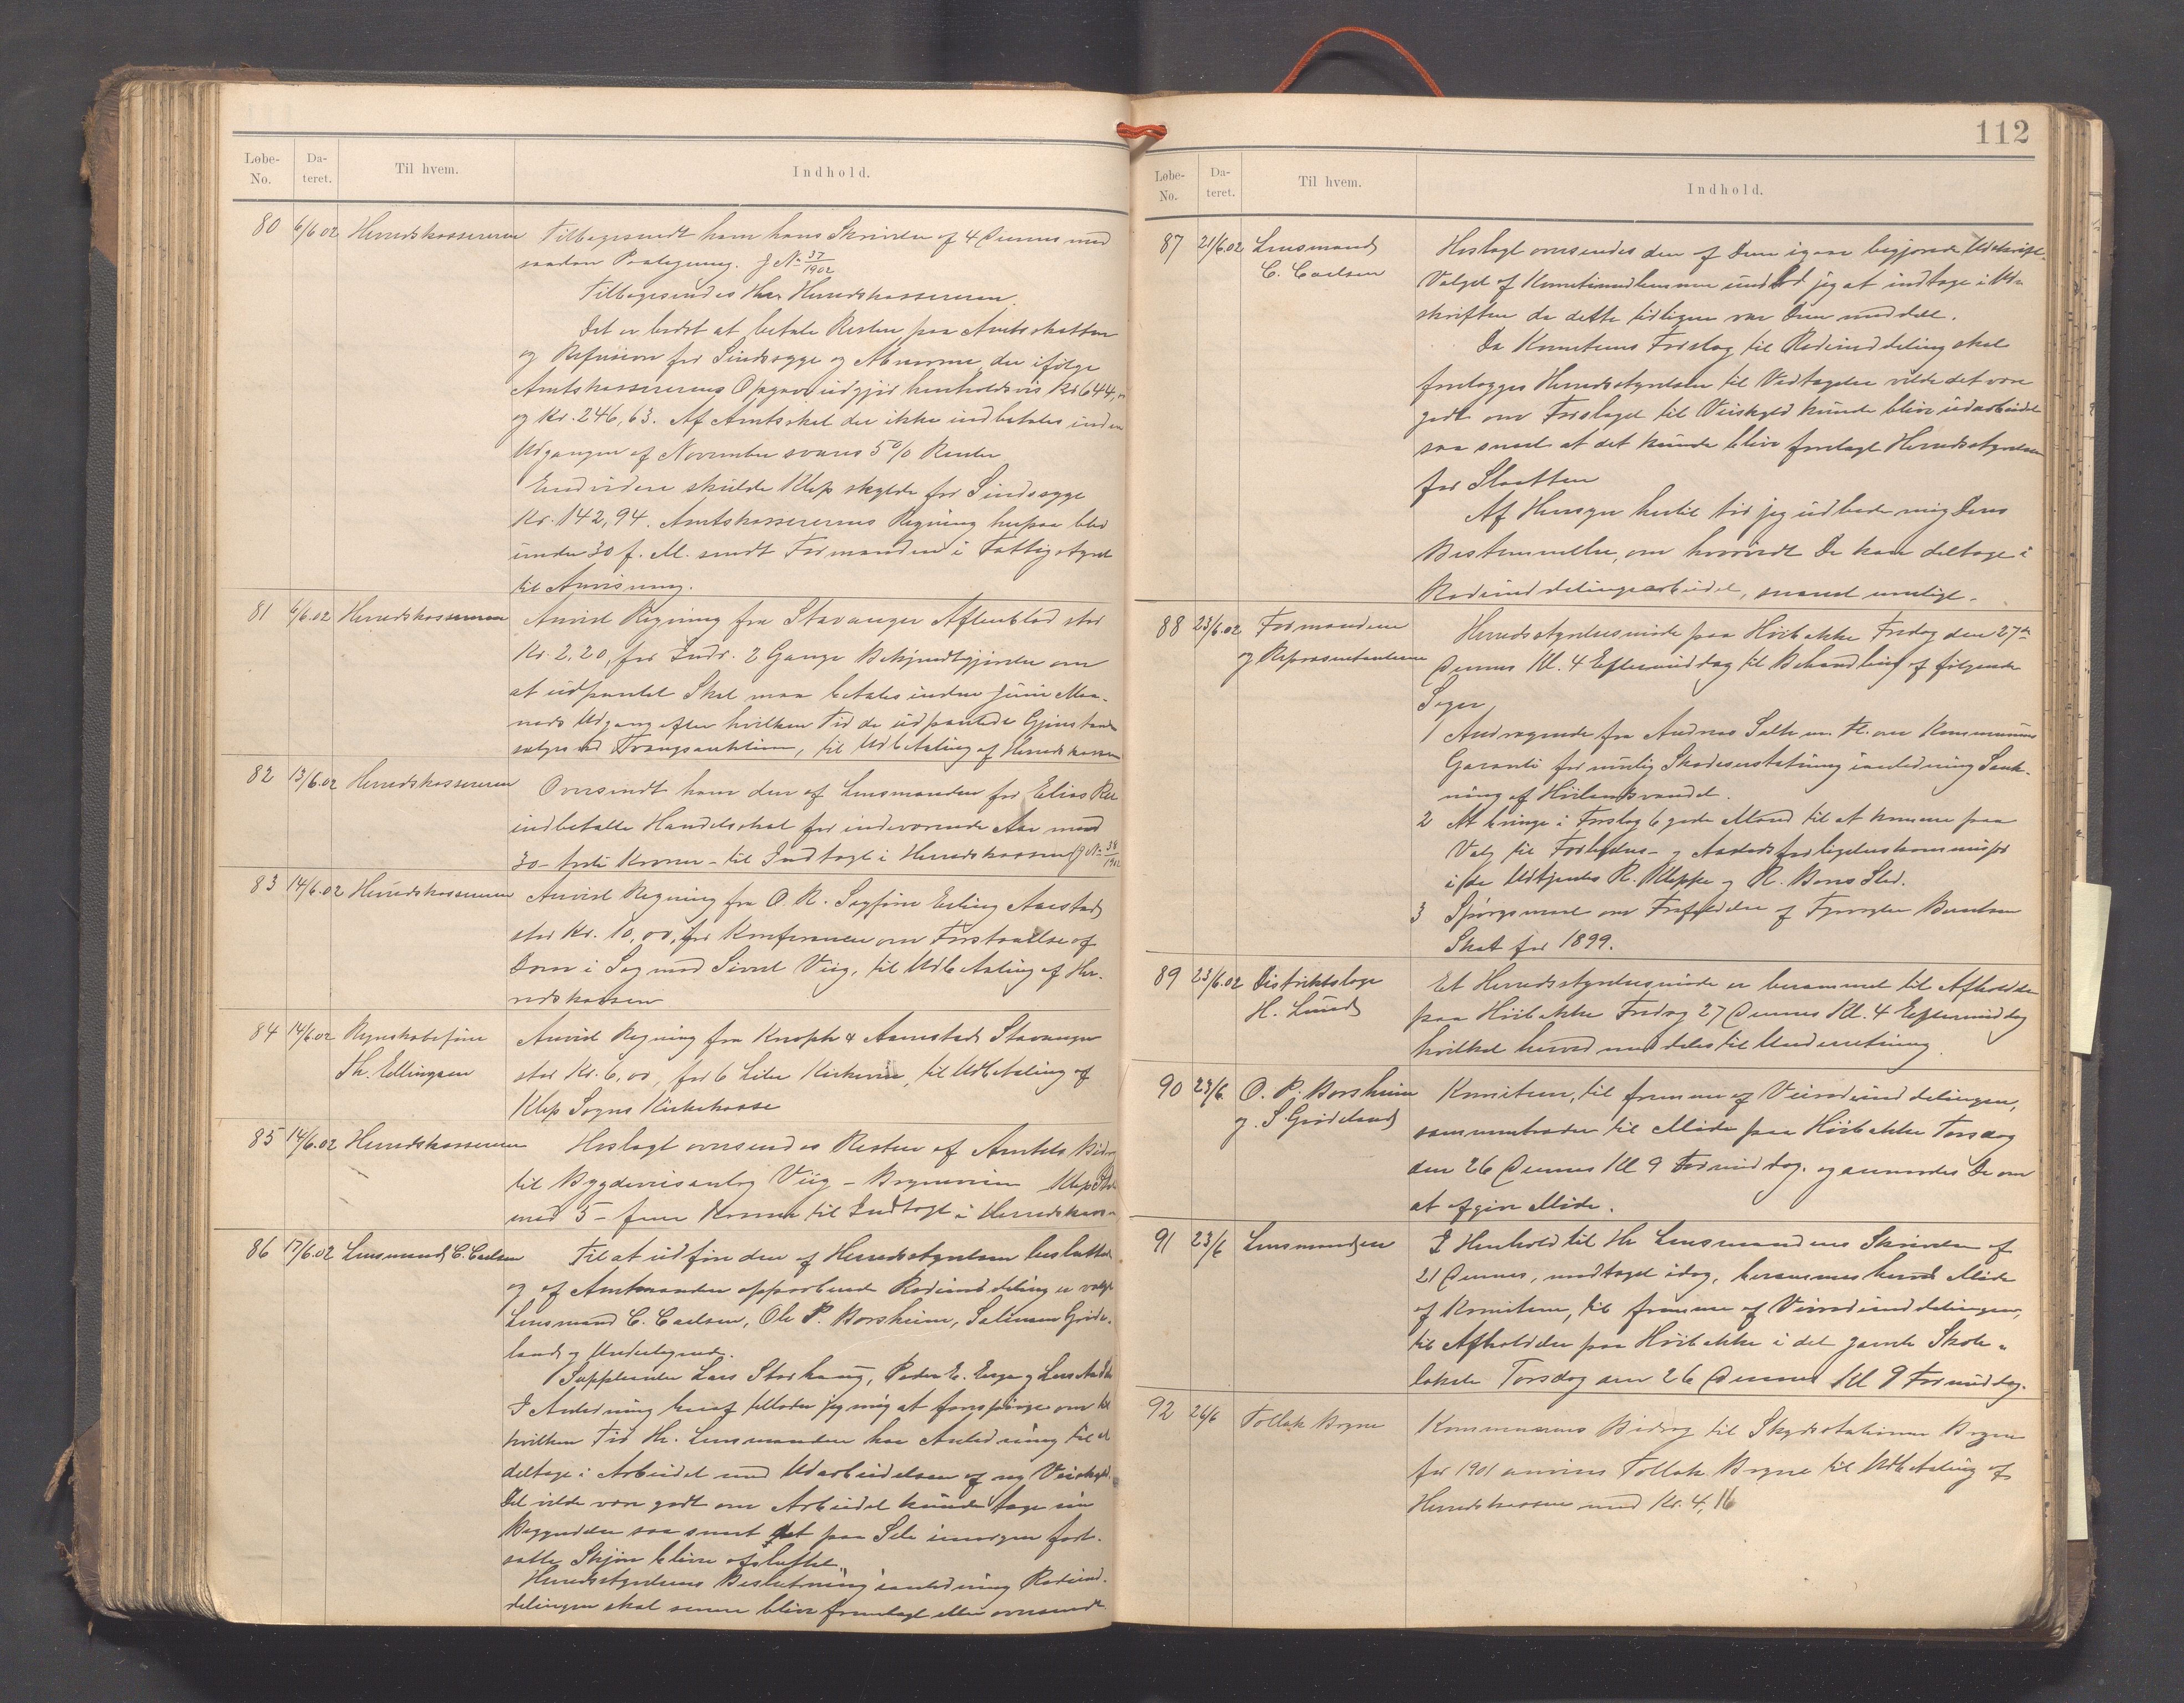 Løbe-No. Da-teret. Til hvem. Indhold.
80 6/6.02 Herredskassereren Tilbagesendt ham hans Skrivelse af 4 Dennes med
saadan Paategning. J No 37/1902
Tilbagesendes Herr Herredskassereren.
Det er bedst at betale Resten paa Amtsskatten
og Refusion for Sindssyge og Abnorme der ifølge
Amtskassererens Opgave udgjør henholdsvis Kr 644,
og Kr. 246,63. Af Amtsskat der ikke indbetales inden
Udgangen af November svares 5% Renter
Endvidere skulde Klep skylde for Sindssyge
Kr. 142,94. Amtskassererens Regning herpaa blev
under 30 f. M. sendt Formanden i Fattigstyret
til Anvisning.
81 6/6.02 Herredskassereren Anvist Regning fra Stavanger Aftenblad stor
Kr. 2,20, for Indr. 2 Gange Bekjendtgjørelse om
at udpantet Skat maa betales inden Juni Maa-
neds Udgang efter hvilken Tid de udpantede Gjenstande
sælges ved Tvangsauktion, til Udbetaling af Herredskassen
82 13/6.02 Herredskassereren Oversendt ham den af Lensmanden for Elias Re
indbetalte Handelsskat for indeværende Aar med
30 - treti Kroner - til Indtægt i Herredskassen J No 38/1902
83 14/6.02 Herredskassereren Anvist Regning fra O. R. Sagfører Erling Aarstad
stor Kr. 10,00, for Konference om Forstaaelse af
Dom i Sag mod Sivert Viig, til Udbetaling af Her-
redskassen
84 14/6.02 Regnskabsfører Anvist Regning fra Knoph & Aanestad Stavanger
Th. Ellingsen stor Kr. 6,00, for 6 Liter Kirkevin, til Udbetaling af
Klep Sogns Kirkekasse
85 14/6.02 Herredskassereren Hoslagt oversendes Resten af Amtets Bidrag
til Bygdeveisanlæg Viig - Bryneveien Klep
med 5 - fem Kroner til Indtægt i Herredskass-
86 17/6.02 Lensmand C. Carlsen Til at udføre den af Herredsstyrelsen besluttede
og af Amtmanden approberede Rodeinddeling er valgt
Lensmand C. Carlsen, Ole P. Borsheim, Salamon Grøde-
land og Undertegnede.
Supplanter Lars Storhaug, Peder E. Erga og Lars
I Anledning heraf tillader jeg mig at forespørge om til
hvilken Tid Hr. Lensmanden har Anledning til at
deltage i Arbeidet med Udarbeidelsen af ny Veiskyld.
Det vilde være godt om Arbeidet kunde tage sin
Begyndelse saa snart det paa Sele imorgen fort-
satte Skjøn bliver afsluttet.
Herredsstyrelsens Beslutning i anledning Rodeind-
delingen skal senere blive fremlagt eller oversendt
112
Løbe-No. Da-teret. Til hvem. Indhold.
87 21/6.02 Lensmand Hoslagt oversendes den af Dem igaar begjærede Udskrift.
C. Carlsen Valget af Komitemedlemmer undlod jeg at indtage i Ud-
skriften da dette tidligere var Dem meddelt.
Da Komiteens Forslag til Rodeinddeling skal
forelægges Herredsstyrelsen til Vedtagelse vilde det være
godt om Forslaget til Veiskyld kunde blive udarbeidet
saa snart at det kunde blive forelagt Herredsstyrelsen
før Slaatten
Af Hensyn hertil tør jeg udbede mig Deres
Bestemmelse, om hvorvidt De kan deltage i
Rodeinddelingsarbeidet, snarest muligt.
88 23/6.02 Formændene Herredsstyrelsesmøde paa Høibakke Fredag den 27de
og Repræsentanterne Dennes Kl. 4 Eftermiddag til Behandling af følgende
Sager
1 Andragende fra Andreas Salte m. fl. om Kommunens
Garanti for mulig Skadeserstatning i anledning Sænk-
ning af Hørlandsvandet.
2 At bringe i Forslag 6 gode Mænd til at komme paa
Valg til Forligelses- og Aastedsforligelseskommissær
i de Udtjentes R. Kleppe og R. Bores Sted.
3 Spørgsmaal om Frafaldelse af Berentsen
Skat for 1899.
89 23/6.02 Distriktslæge Et Herredsstyrelsesmøde er berammet til Afholdelse
H. Lund paa Høibakke Fredag 27 Dennes Kl. 4 Eftermiddag
hvilket herved meddeles til Underretning.
90 23/6 O. P. Borsheim Komiteen, til fremme af Veirodeinddelingen,
og S. Grødeland sammentræder til Møde paa Høibakke Torsdag
den 26 Dennes Kl 9 Formiddag. og anmodes De om
at afgive Møde.
91 23/6 Lensmanden I Henhold til Hr Lensmandens Skrivelse af
21 Dennes, modtaget idag, berammes herved Møde
af Komiteen, til fremme af Veirodeinddelingen,
til Afholdelse paa Høibakke i det gamle Skole-
lokale Torsdag den 26 Dennes Kl 9 Formiddag.
92 26/6 Tollak Bryne Kommunens Bidrag til Skydsstationen Bryne
for 1901 anvises Tollak Bryne til Udbetaling af
Herredskassen med Kr. 4,16